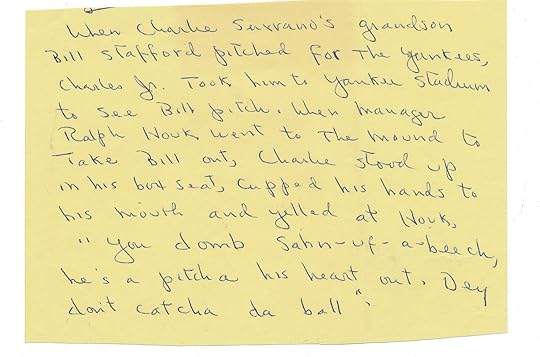 When Charlie Serrano's grandson
Bill Stafford pitched for The Yankees,
Charles Jr. Took him to Yankee Stadium
to see Bill pitch. When manager
Ralph Houk went to The mound to
Take Bill out, Charlie stood up
in his box seat, cupped his hands to
his mouth and yelled at Houk,
"You domb Sahn-uf-a-beech,
he's a pitcha his heart out. Dey
don't catcha da ball".